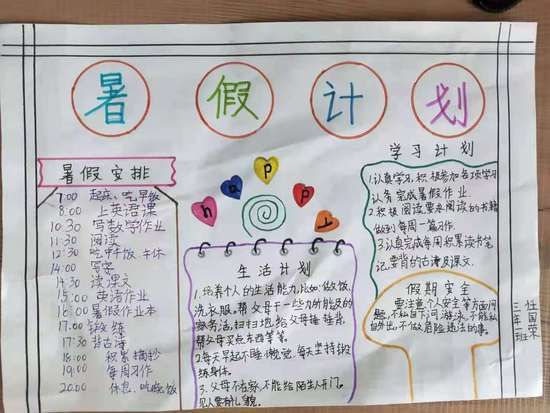 暑 假 计 划
暑假安排
7:00 起床、吃早饭
8:00 上英语课
10:30 写数学作业
11:30 阅读
12:30 吃中午饭、午休
14:00 写字
14:30 读课文
15:00 英语作业
16:00 暑假作业本
17:00 锻炼
17:30 背古诗
18:00 积累摘抄
19:00 每周习作
20:00 休息、吃晚饭
happy
生活计划
1.培养个人的生活能力,比如:做饭、
洗衣服,帮父母干一些力所能及的
家务活,扫扫地,给父母捶捶背,
帮父母买点东西等等。
2.每天早起不睡懒觉,每天坚持锻
炼身体。
3.父母不在家,不能给陌生人开门。
见人要有礼貌。
学习计划
1.认真学习,积极参加各项学习
认务完成暑假作业。
2.积极阅读要求阅读的书籍
做到每周一篇习作。
3.认真完成每周积累读书笔
记,要背的古诗及课文。
假期安全
要注意个人安全等方面问
题,不私自下河游泳,不能私
自外出,不做危险违法的事。
三年三班
任国荣